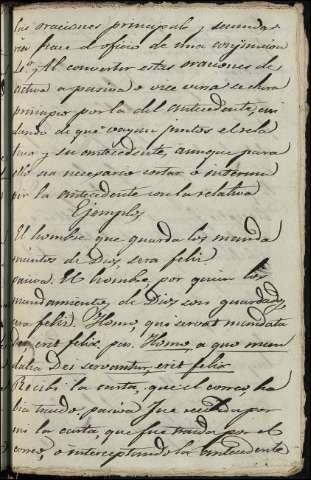 las oraciones principal y secunda
ria hace el oficio de una conjuncion
4.º y Al convertir estas oraciones de
activa a pasiva o vice versa se
principio por la del antecedente, cui
dando de que vayan juntos el rela
tivo y su antecedente, aunque para
ello sea necesario cortar o interrum
pir la antecedente con la relativa
Ejemplos
El hombre que guarda los manda
mientos de Dios, sera feliz
pasiva. El hombre por quien los
mandamientos de Dios son guardados
sera feliz. Homo, qui servat mandata
Dei, erit felix, pas. Homo, a quo man
data Dei servantur, erit felix
Recibi la carta, que el correo, ha
bia traido, pasiva Fue recibida por
mi la carta, que fue traida por el
correo, o interceptando la antecedente